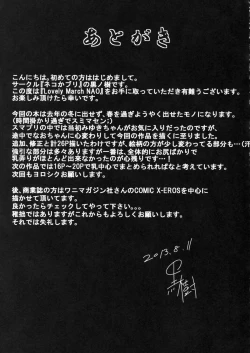 あとがき
こんにちは。初めての方ははじめまして。
サークル『ネコかブリ』の黒ノ樹です。
この度は『Lovely March NAO』をお手に取っていただき有難うございます。
お楽しみ頂けたら幸いです。
今回の本は去年の冬に出せず、春を過ぎようやく出せたモノになります。
（時間掛かり過ぎでスミマセン）
スマプリの中では当初みゆきちゃんがお気に入りだったのですが、
途中でなおちゃんに心変わりして今回の作品を描くに至りました。
追加、修正と計26P描いたわけですが、絵柄の方が少し変わってる部分も…（汗
強引な部分は多々ありますが一番は、全体的にお尻ばかりで
乳弄りがほとんど出来なかったのが心残りです…！
次の作品では16P～20Pで乳中心でまとめられればなと考えています。
次回もヨロシクお願いします。
後、商業誌の方はワニマガジン社さんのCOMIC X-EROSを中心に
描かせて頂いてます。
良かったらチェックしてやって下さい。。。
稚拙ではありますがこれからもよろしくお願いします。
それでは失礼します。
2013.8.11